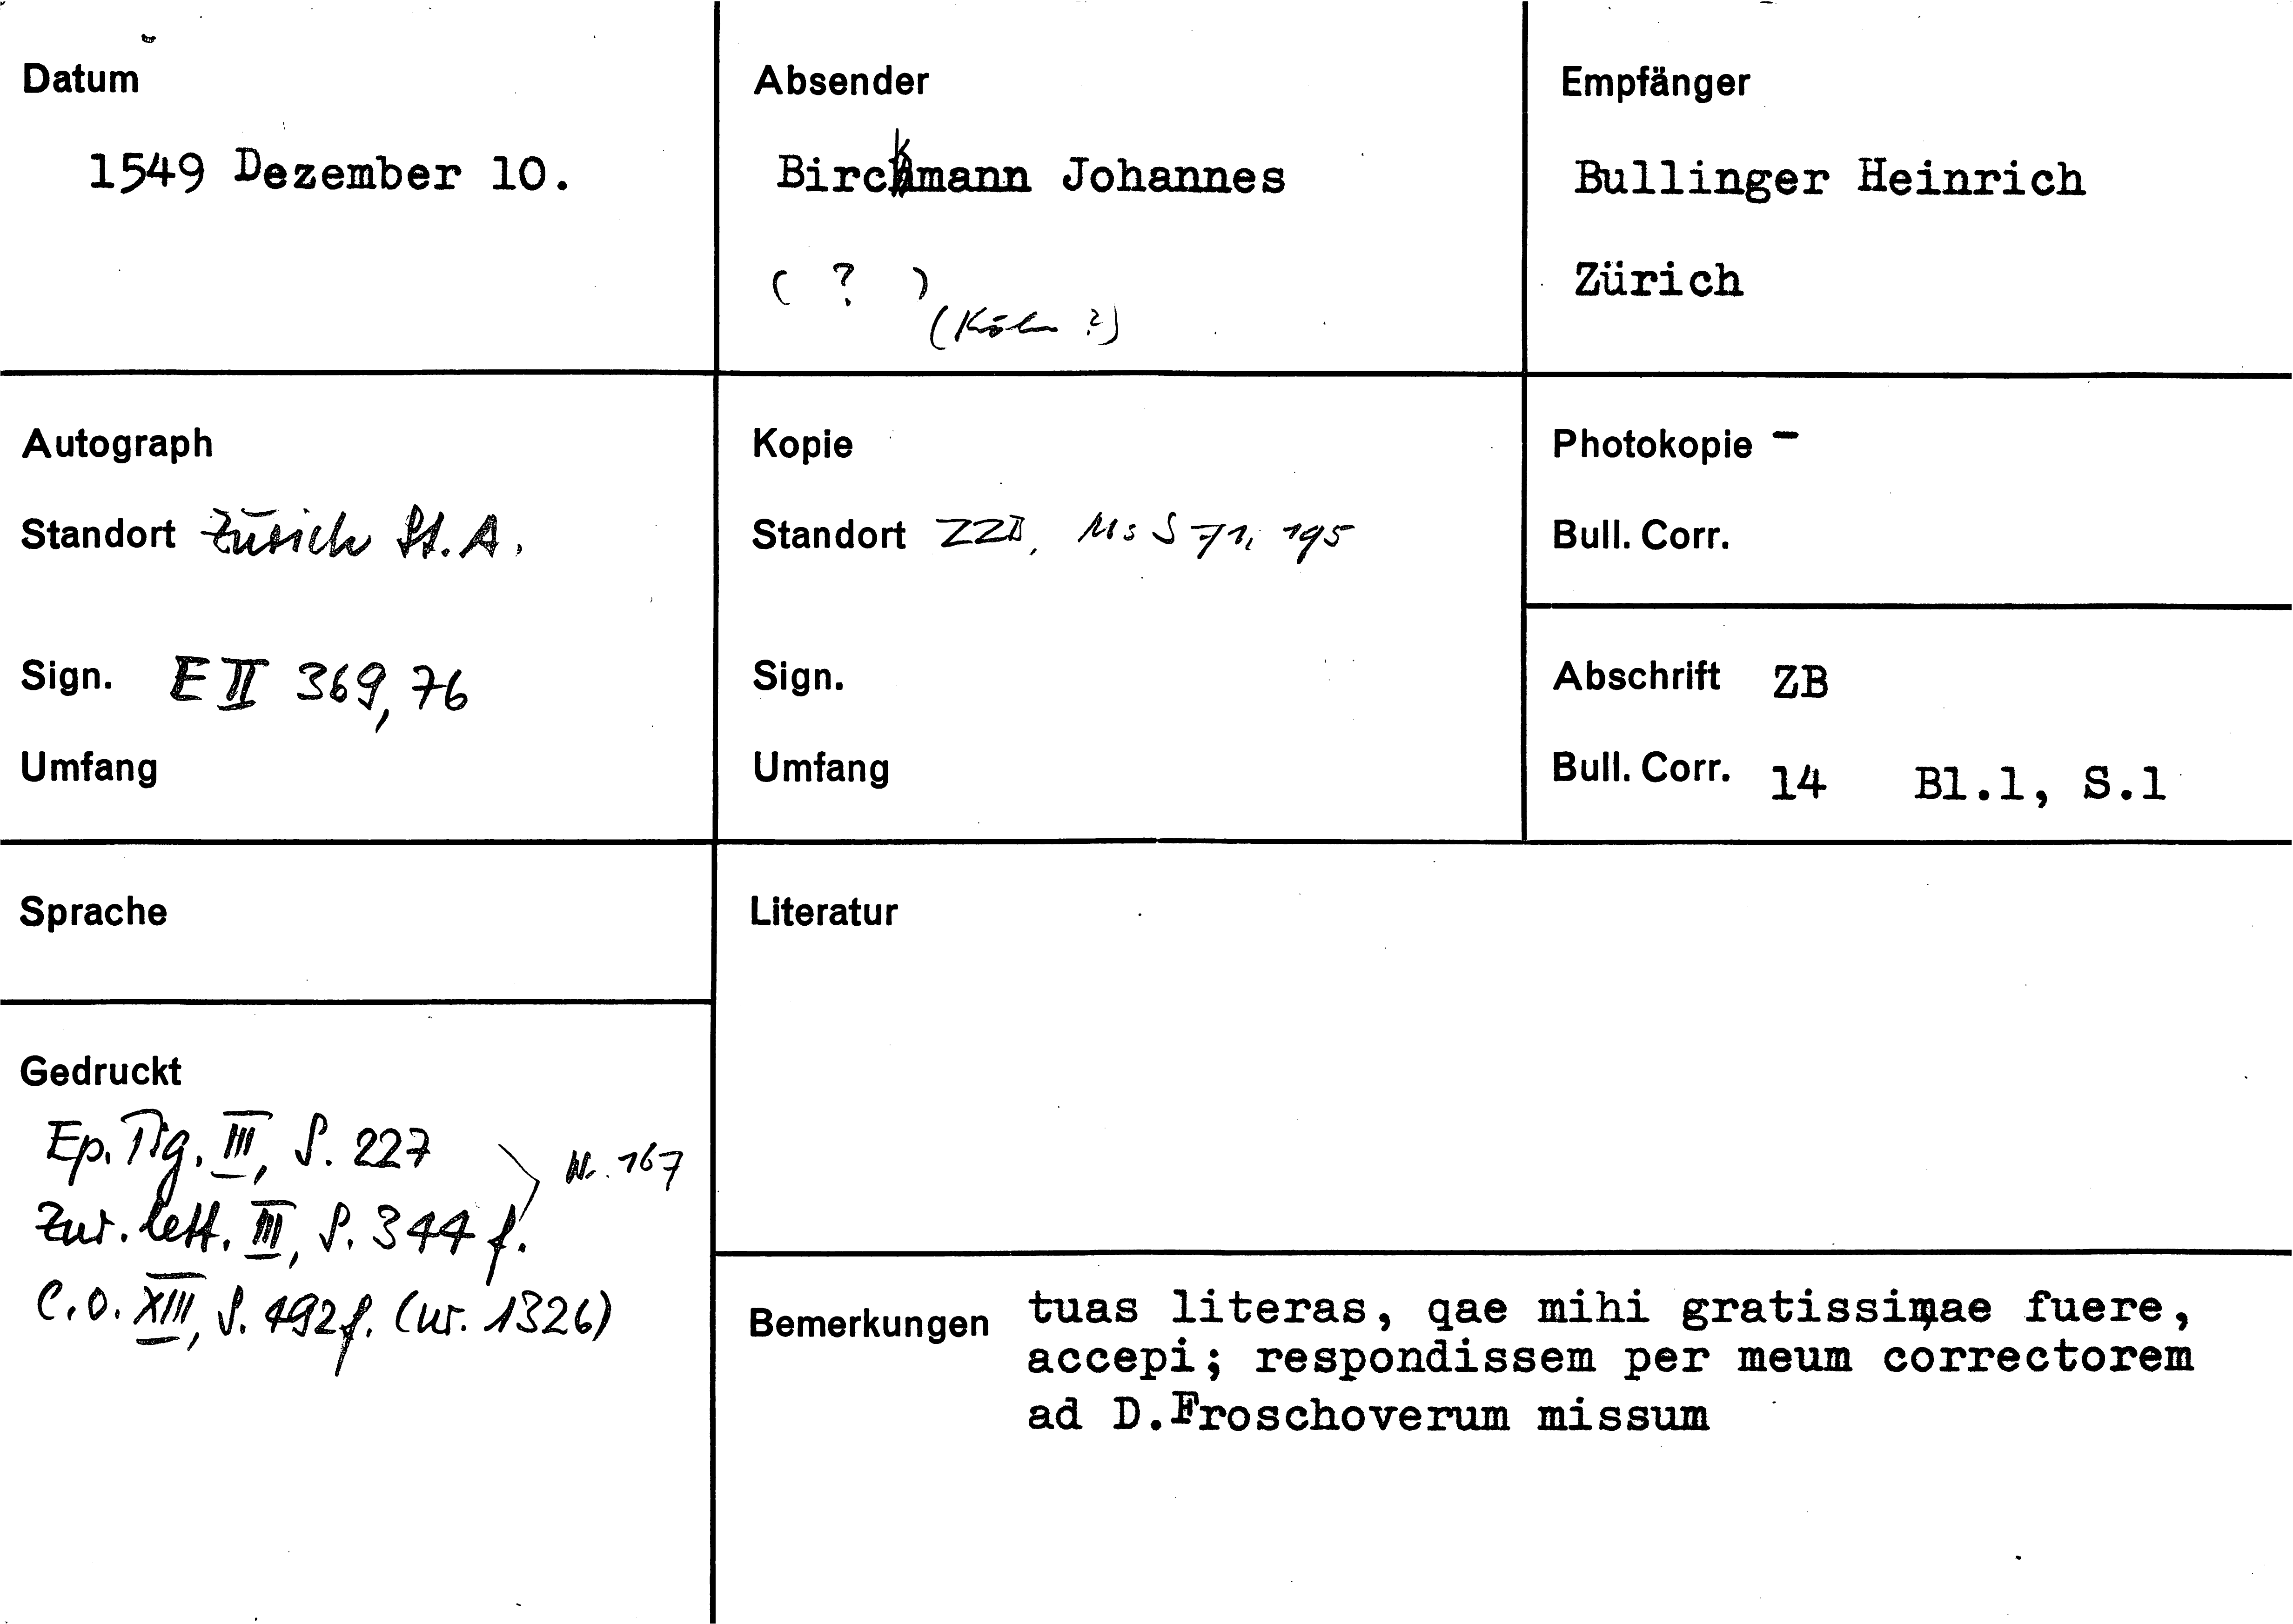 Datum
1549 Dezember 10.
Absender
Birckmann Johannes
( ? )
(Köln ?)
Empfänger
Bullinger Heinrich
Zürich
Autograph
Standort Zürich St.A.
Sign. E II 369,76
Umfang
Kopie
Standort ZZB, Ms S 71, 195
Sign.
Umfang
Photokopie -
Bull. Corr.
Abschrift ZB
Bull. Corr. 14 Bl.1, S.1
Sprache
Gedruckt
Ep. Tig. III, S. 227
Nr. 167
Zur. lett. III, S. 344 f.
C.O. XIII, S. 492f. (nr. 1326)
Literatur
Bemerkungen tuas literas, qae mihi gratissimae fuere,
accepi; respondissem per meum correctorem
ad D.Froschoverum missum